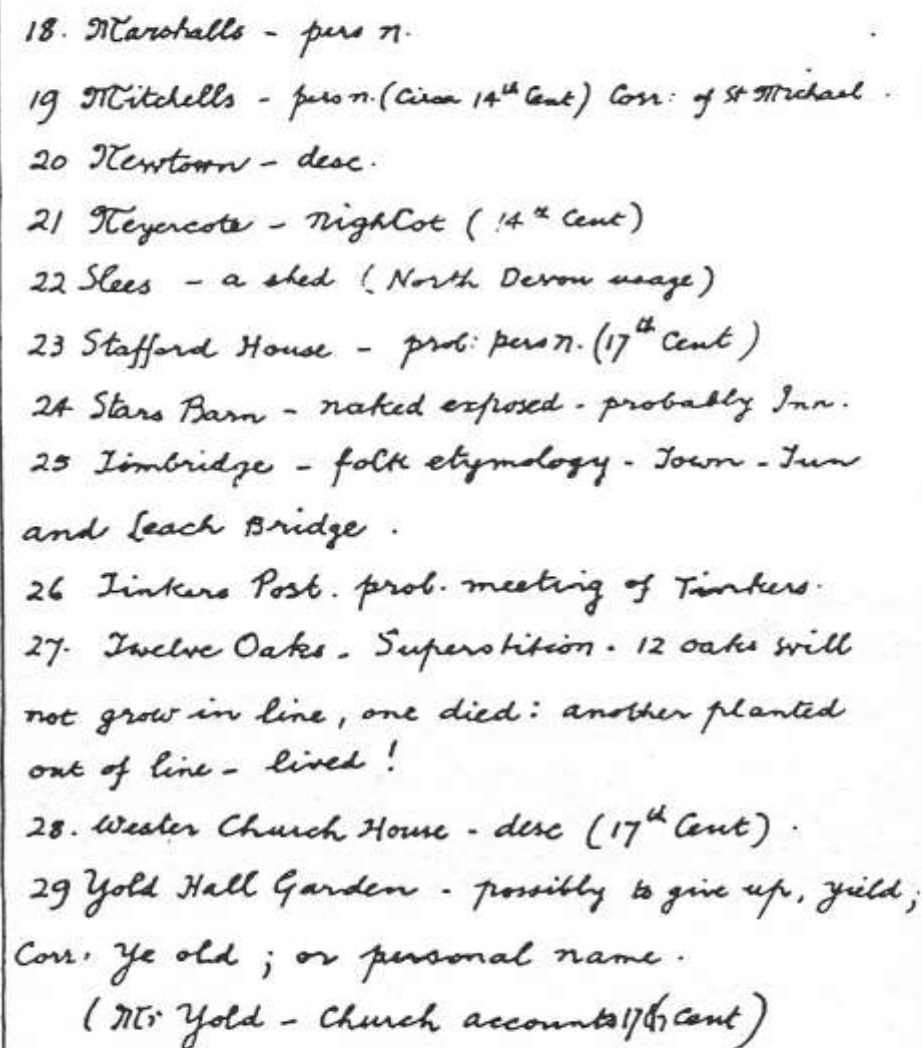 18. Marshalls - pers n.
19 Mitchells - pers n. (Circa 14th Cent) Corr: of St Michael.
20 Newtown - desc.
21 Neyercote - NighCot (14th Cent)
22 Slees - a shed (North Devon usage)
23 Stafford House - prob: pers n. (17th Cent)
24 Stars Barn - naked exposed - probably Inn.
25 Timbridge - folk etymology - Town - Tun
and Leach Bridge.
26 Tinkers Post. prob. meeting of Tinkers.
27. Twelve Oaks. Superstition. 12 oaks will
not grow in line, one died: another planted
out of line - lived!
28. Wester Church House - desc (17th Cent).
29 Yold Hall Garden - possibly to give up, yield;
Corr. Ye old; or personal name.
(Mr Yold - Church accounts 17th Cent)